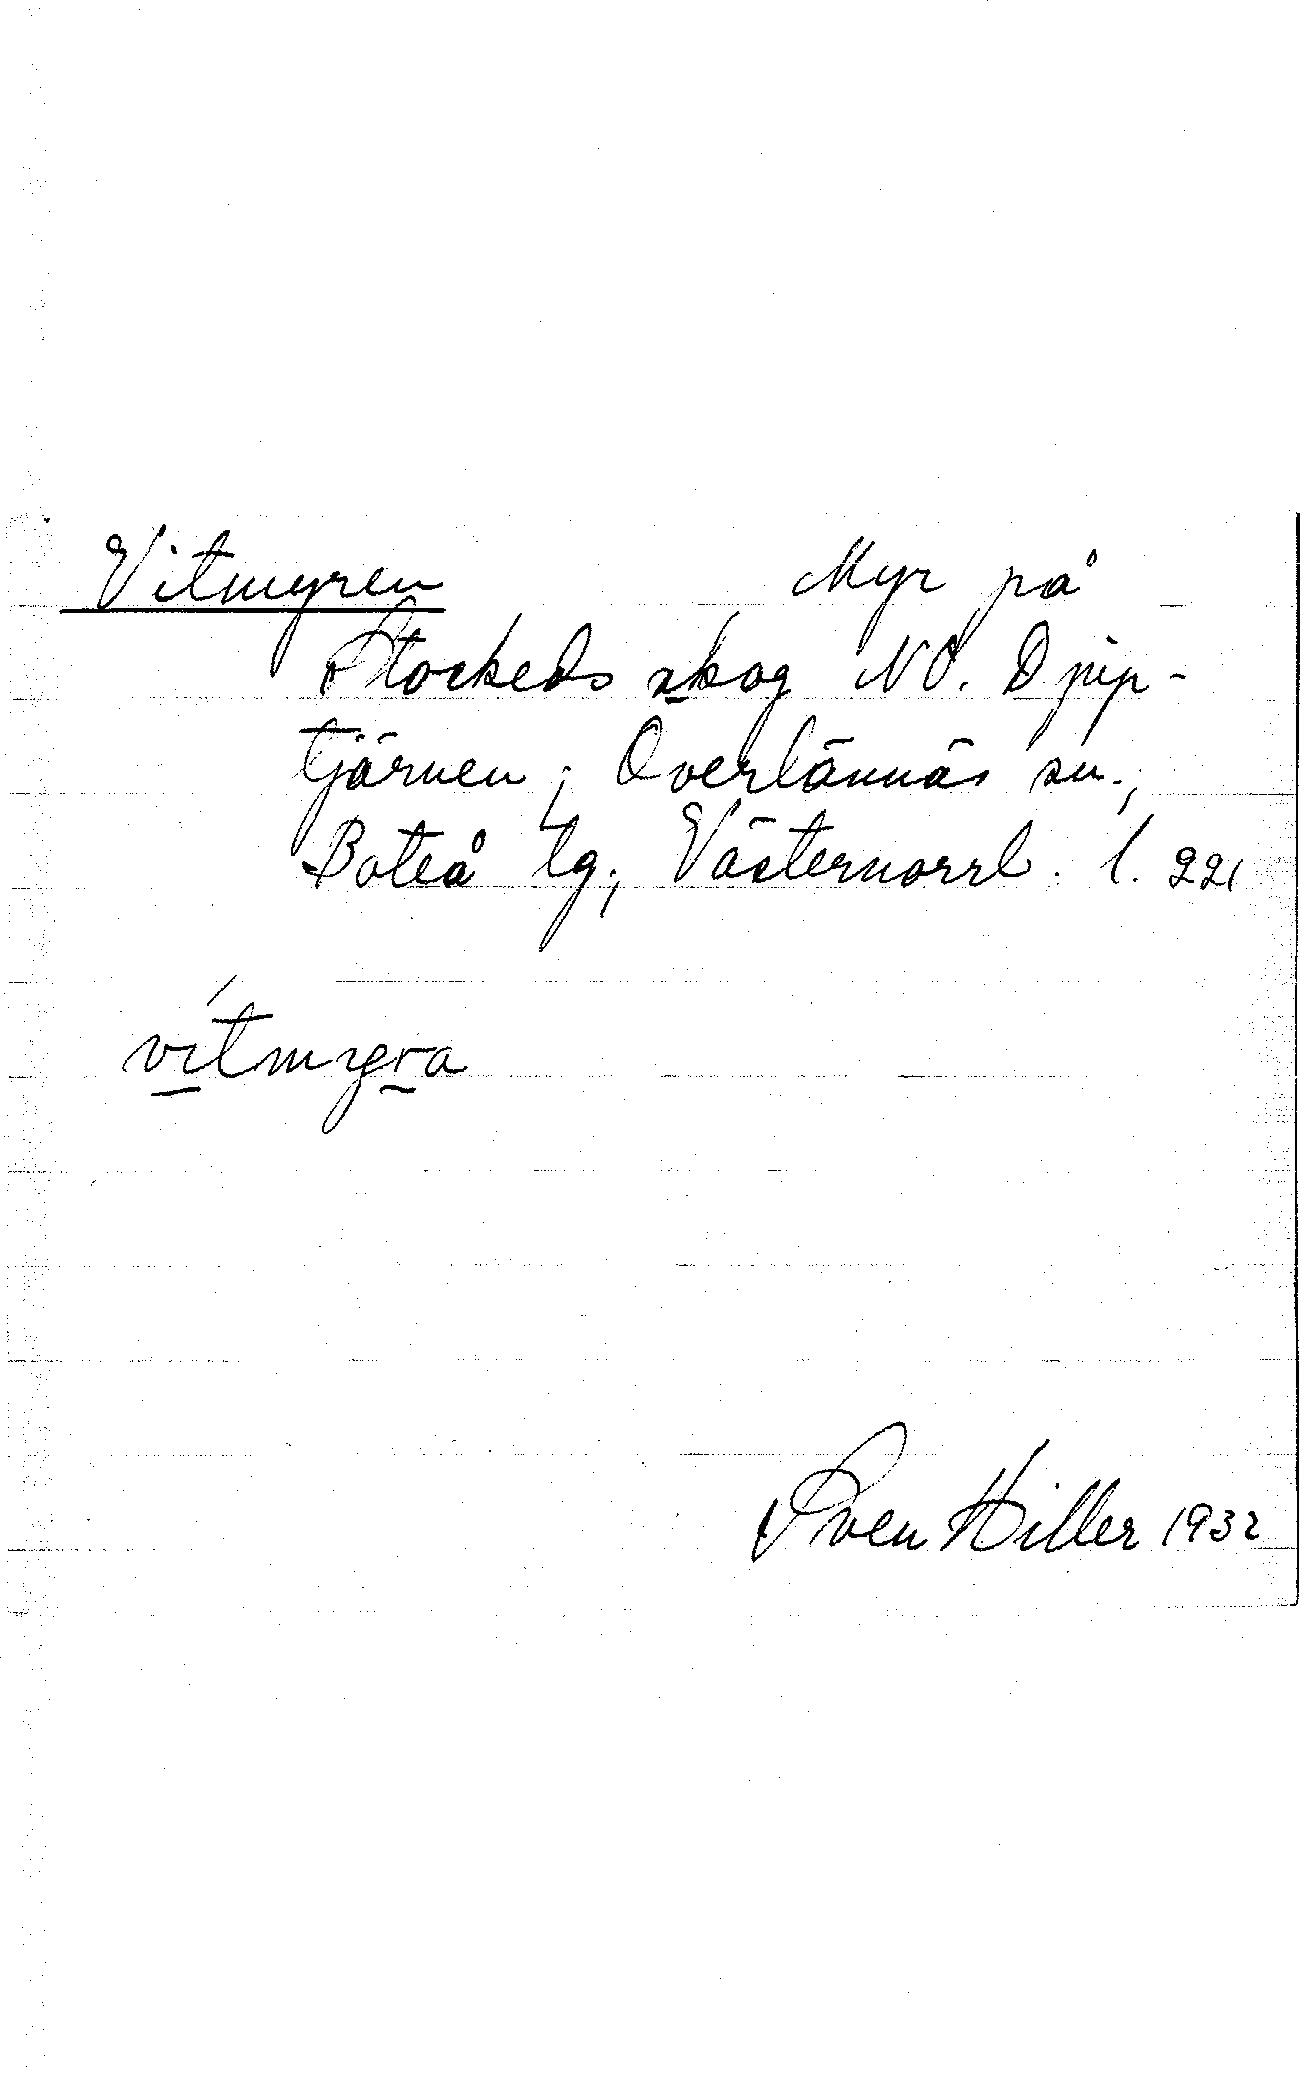 Vitmyren Myr på
Stockeds skog NO. Djup-
tjärnen; Överlännäs sn.,
Boteå tg., Västernorrl. l. 221
vítmyra
Sven Hiller 1932